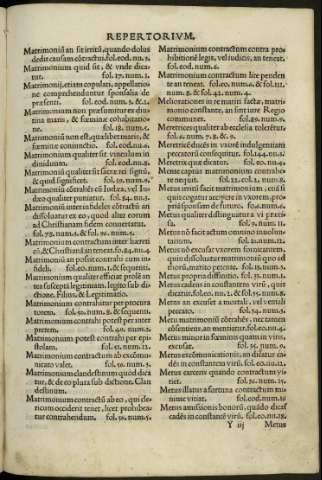 REPERTORIVM.
Matrimoniũ an sit irritũ, quando dolus
dedit causam cõtractui. fol. eod. nu. 2.
Matrimonium quid sit, & vnde dica
tur. fol. 17. num. 1.
Matrimonij, etiam copulati, appellatio
ne comprehenduntur sponsalia de
præsenti. fol. eod. num. 5. & 2.
Matrimonium an possit
maris, & fœminæ cohabitatio
ne. fol. 18. num. 2.
Matrimoniũ non est, qualibet maris, &
fœminæ coniunctio. fol. eod. nu.
Matrimonium qualiter sit vinculum in
diuiduum. fol. eod. nu.
Matrimoniũ qualiter sit sacræ rei signũ,
& quid significet. fol. 19. num.
Matrimoniũ cõtrahẽs cũ Iudæa, vel Iu
dæo qualiter puniatur. fol. 54. nu.
Matrimoniũ inter infideles cõtractũ an
dissoluatur ex eo, quod alter eorum
ad Christianam fidem conuertatur.
fol. 78. num. 1.
Matrimonium contractum inter hæreti
cũ, & Christianũ an teneat. fo. 84. nu. 4.
Matrimoniũ an possit contrahi cum in-
fideli. fol. eo. num. 1. & sequentis.
Matrimonium qualiter efficiat prolẽ an
tea susceptã legitimam. legito sub di-
ctione, Filius, & Legitimatio.
Matrimonium contrahitur per procura
torem. fol. 50. num. 8. & sequenti.
Matrimonium contrahi potest per inter
pretem. fol. 40. num. 2.
Matrimonium potest contrahi per epi-
stolam. fol. 51. num. 12.
Matrimonium contractum ab excõmu-
nicato valet. fol. 50. num.
Matrimonium clandestinum quod dica
tur, & de eo plura sub dictione, Clan
destinum.
Matrimonium contractũ ab eo, qui de-
ricum occiderit tenet, licet prohibea-
tur contrahendum. fol. 50. num. 5.
Matrimonium contractum contra pro-
hibitionẽ legis, vel iudicis, an teneat.
fol. eod. num. 6.
Matrimonium contractum lite penden
te an teneat. fol. eo. num. 6. & fol. 112.
num. 9. & fol. 42. num. 4.
Meliorationes in re mariti factæ, matri-
monio constante, an sint iure Regio
communes. fol. 89. num. 9.
Meretrices qualiter ab ecclesia tolerẽtur.
fol. 4. num. 7. 8. & 9.
Meretricẽ ducẽs in vxorẽ indulgentiam
peccatorũ consequitur. fol. 144. nu. 2.
Meretrix quæ dicatur. fol. eo. nu. 4.
Mente captus matrimonium contrahe-
re nequit. fol. 21. col. 1. num. 8.
Metus initus facit matrimonium, etiã si
quis cogatur accipere in vxorem, pro-
priã sponsam de futuro. fo. 6. num. 1.
Metus qualiter distinguatur à vi præci-
sa. fol. 35. num. 11.
Metus nõ facit actum omnino inuolun-
tarium. fol. eod. nu. 12.
Metus nõ excusat vxorem fornicantem,
quin dissoluatur matrimoniũ quo ad
thorũ, marito petente. fol. 15. num. 9.
Metus propria diffinitio. fol. 35. num. 1.
Metus cadens in constantem virũ, quis
dicatur. fol. eo. nu. 2. & fol. 35. num. 8.
Metus an excuset à mortali, vel veniali
peccato. fol. 34. num. 2.
Metu matrimoniũ cõtrahẽs, nec tamen
absentiens, an mentiatur. fol. eo. nu. 4.
Metus minor in fœminis quam in viris,
excusat. fol. 35. num. 9.
Metus excõmunicationis, an dicatur ca-
dẽs in constantẽ virũ. fol. 39. num. 12.
Metus carceris quando contractum vi-
tiet. fol. 39. num. 15.
Metus illatus à fortuna contractum mi-
nime vitiat. fol. eod. num. 18
Metus amissionis honorũ, quãdo dicat
cadẽs in constantẽ virũ. fol. eo. nu. 18.
Y iij Metus